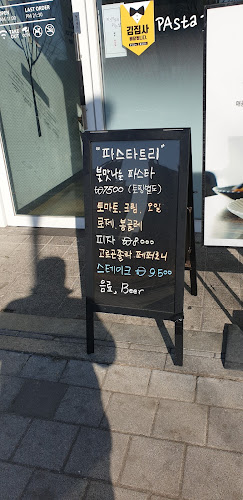 LAST ORDER
PM 21:30
김집사
PAsta
"파스타트리"
불맛나는 파스타
₩7500 (토핑별도)
토마토, 크림, 오일
로제, 봉골레
피자 ₩8000
고르곤졸라, 페퍼로니
스테이크 ₩9.500
음료, Beer